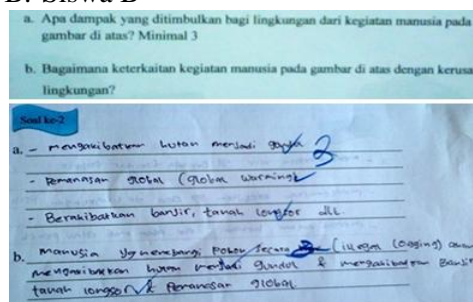 B. Siswa B
a. Apa dampak yang ditimbulkan bagi lingkungan dari kegiatan manusia pada
gambar di atas? Minimal 3
b. Bagaimana keterkaitan kegiatan manusia pada gambar di atas dengan kerusa
lingkungan?
Soal ke-2
a. - mengakibatkan hutan menjadi 3
- Pemanasan global (global warming)
- Berakibatkan banjir, tanah longsor dll.
b. manusia yg menebangi pohon secara (illegal logging)
mengakibatkan hutan menjadi gundul & mengakibatkan Banjir
tanah longsor & Pemanasan global